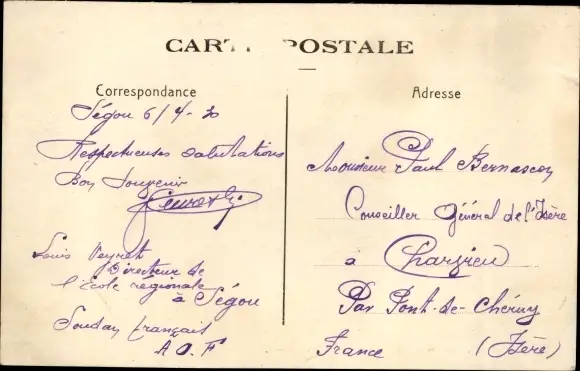 CARTE POSTALE
Correspondance
Ségou 6/4-30
Respectueuses salutations
Bon Souvenir
Louis Veyret
Directeur de
l'École régionale
à Ségou
Soudan français
A O F
Adresse
Monsieur Paul Bernascon
Conseiller Général de l'Isère
à Charvieu
Par Pont-de-Chéruy
France (Isère)